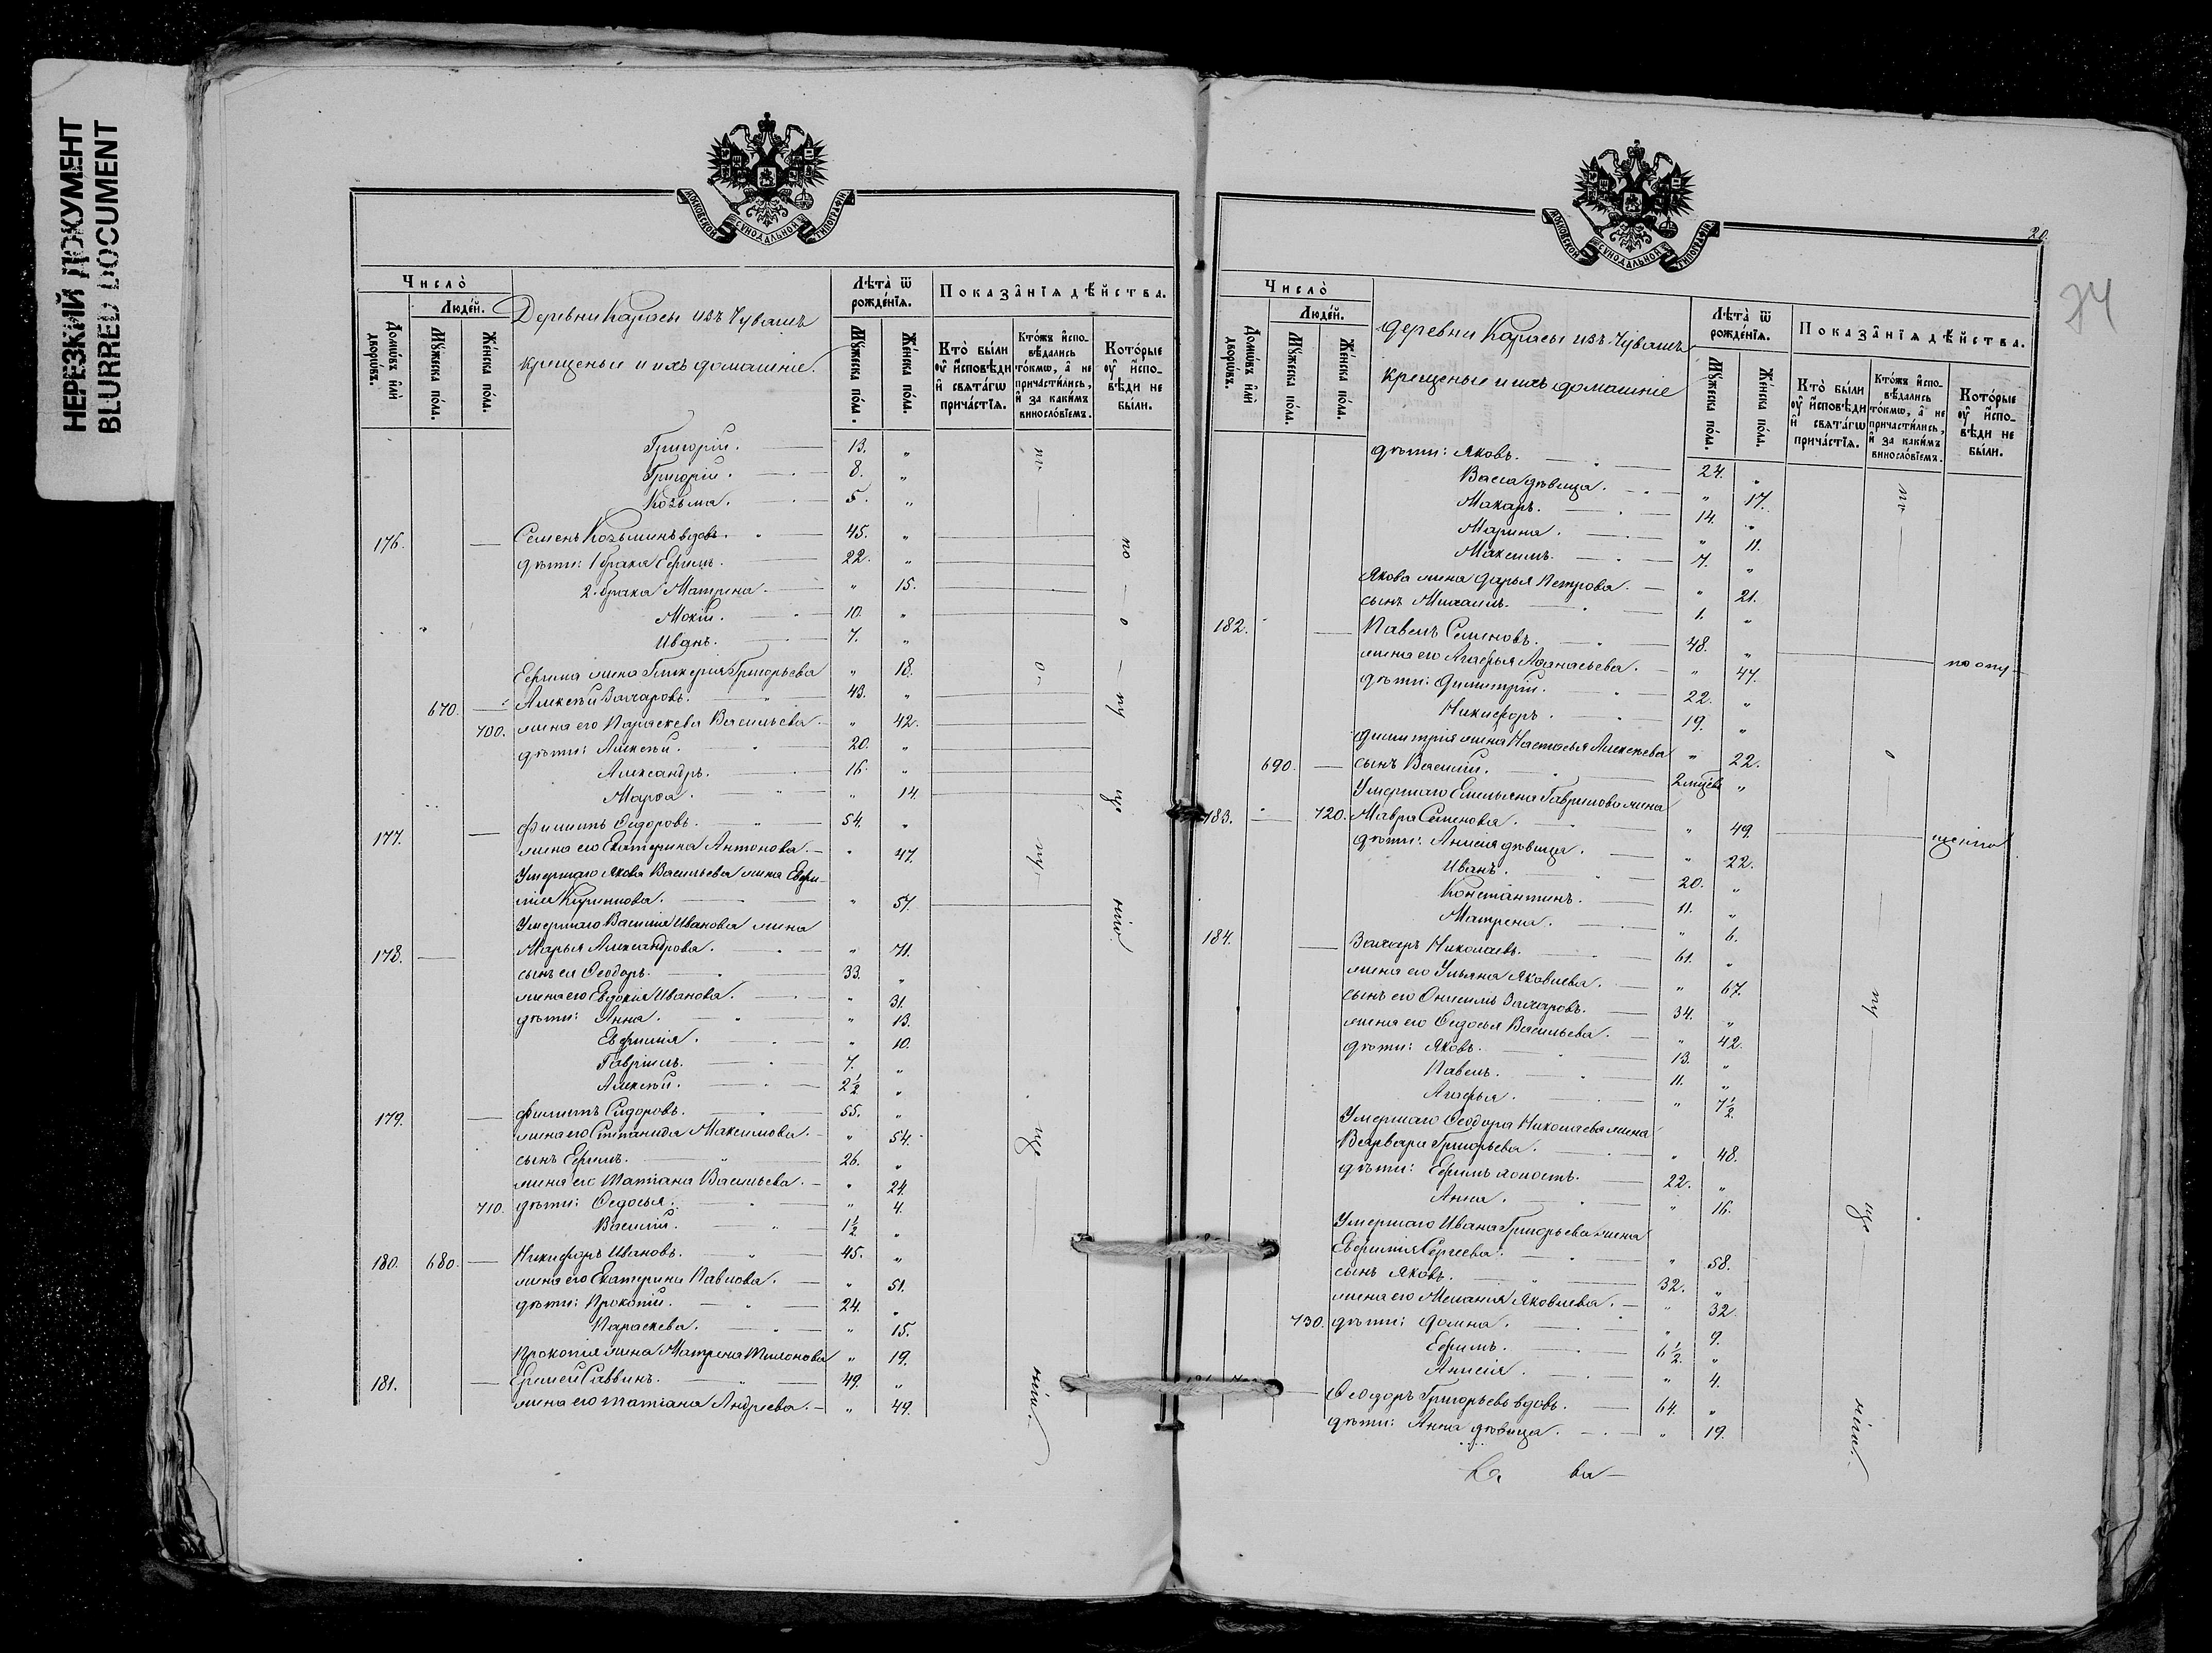 НЕРЕЗКИЙ ДОКУМЕНТ
BLURRED DOCUMENT
МОСКОВСКОЙ СѴНОДАЛЬНОЙ ТИПОГРАФІИ
Число̀
Люде́й.
Домѡ́въ и҆лѝ дворѡ́въ.
Мꙋ́жеска по́ла.
Же́нска по́ла.
Деревни Карасы изъ Чувашъ
крещеные и ихъ домашніе.
Лѣта̀ ѿ рожде́нїѧ.
Мꙋ́жеска по́ла.
Же́нска по́ла.
Показа̂нїѧ дѣ́йства.
Кто̀ бы́ли оу҆ и҆сповѣ́ди и҆ свѧта́гѡ прича́стїѧ.
Кто́жъ и҆спо-вѣ́дались то́кмѡ, а҆ не причасти́лись, и҆ за каки́мъ винословїемъ.
Кото́рые оу҆ и҆спо-вѣ́ди не бы́ли.
Григорій. 13. „
Григорій. 8. „
Козьма. 5. „
176. Семенъ Козьминъ вдовъ. 45. „
дѣти: 1 брака Ефимъ. 22. „
2. брака Матрена. „ 15.
Мокій. 10. „
Иванъ. 7. „
Ефима жена Гликерія Григорьева „ 18.
670. Алексѣй Захаровъ. 43. „
700. жена его Параскева Васильева. „ 42.
дѣти: Алексѣй. 20. „
Александръ. 16. „
Марѳа. „ 14.
177. Филиппъ Ѳедоровъ. 54. „
жена его Екатерина Антонова. „ 47.
Умершаго Якова Васильева жена Евфи-
мія Кириллова. „ 57.
Умершаго Василія Иванова жена
178. Марья Александрова. „ 71.
сынъ ея Ѳеодоръ. 33. „
жена его Евдокія Иванова. „ 31.
дѣти: Анна. „ 13.
Евфимія. „ 10.
Гавріилъ. 7. „
Алексѣй. 2½ „
179. Филиппъ Сидоровъ. 55. „
жена его Степанида Максимова. „ 54.
сынъ Ефимъ. 26. „
жена его Татіана Васильева. „ 24.
710. дѣти: Ѳедосья. „ 4.
Василій. 1½ „
180. 680. Никифоръ Ивановъ. 45. „
жена его Екатерина Павлова. „ 51.
дѣти: Прокопій. 24. „
Параскева. „ 15.
Прокопія жена Матрена „ 19.
181. Еремей Саввинъ. 49. „
жена его Татіана Андреева. „ 49.
по о пу ще нію.
МОСКОВСКОЙ СѴНОДАЛЬНОЙ ТИПОГРАФІИ
20.
74
Число̀
Люде́й.
Домѡ́въ и҆лѝ дворѡ́въ.
Мꙋ́жеска по́ла.
Же́нска по́ла.
деревни Карасы изъ Чувашъ
крещеные и ихъ домашніе
Лѣта̀ ѿ рожде́нїѧ.
Мꙋ́жеска по́ла.
Же́нска по́ла.
Показа̂нїѧ дѣ́йства.
Кто̀ бы́ли оу҆ и҆сповѣ́ди и҆ свѧта́гѡ прича́стїѧ.
Кто́жъ и҆спо-вѣ́дались то́кмѡ, а҆ не причасти́лись, и҆ за каки́мъ винословїемъ.
Кото́рые оу҆ и҆спо-вѣ́ди не бы́ли.
дѣти: Яковъ. 24. „
Васса дѣвица. „ 17.
Макаръ. 14. „
Марина. „ 11.
Максимъ. 7. „
Якова жена Дарья Петрова. „ 21.
сынъ Михаилъ. 1. „
182. Павелъ Семеновъ. 48. „
жена его Агафья Аѳанасьева. „ 47.
дѣти: Димитрій. 22. „
Никифоръ. 19. „
Димитрія жена Настасья Алексѣева „ 22.
690. сынъ Василій. „
Умершаго Емельяна Гаврилова жена
183. 720. Мавра Семенова. „ 49.
дѣти: Анисія дѣвица. „ 22.
Иванъ. 20. „
Константинъ. 11. „
Матрена. „ 6.
184. Захаръ Николаевъ. 61. „
жена его Ульяна Яковлева. „ 67.
сынъ его Онисимъ Захаровъ. 34. „
жена его Ѳедосья Васильева. „ 42.
дѣти: Яковъ. 13. „
Павелъ. 11. „
Агафья. „ 7½
Умершаго Ѳеодора Николаева жена
Варвара Григорьева. „ 48.
дѣти: Ефимъ холостъ. 22. „
Анна. „ 16.
Умершаго Ивана Григорьева жена
Евфимія Сергеева. „ 58.
сынъ Яковъ. 32. „
жена его Меланія Яковлева. „ 32.
730. дѣти: Домна. „ 9.
Ефимъ. 6½ „
Анисія. „ 4.
Ѳеодоръ Григорьевъ вдовъ. 64. „
дѣти: Анна дѣвица. „ 19.
по опу-
щенію